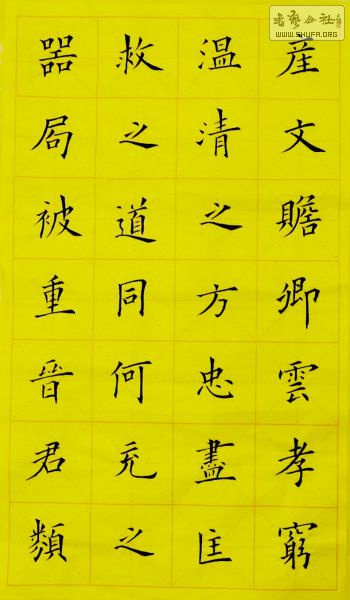 産文贍卿雲孝窮
温清之方忠盡匡
救之道同何充之
噐局被重晉君類
書藝公社
WWW.SHUFA.ORG